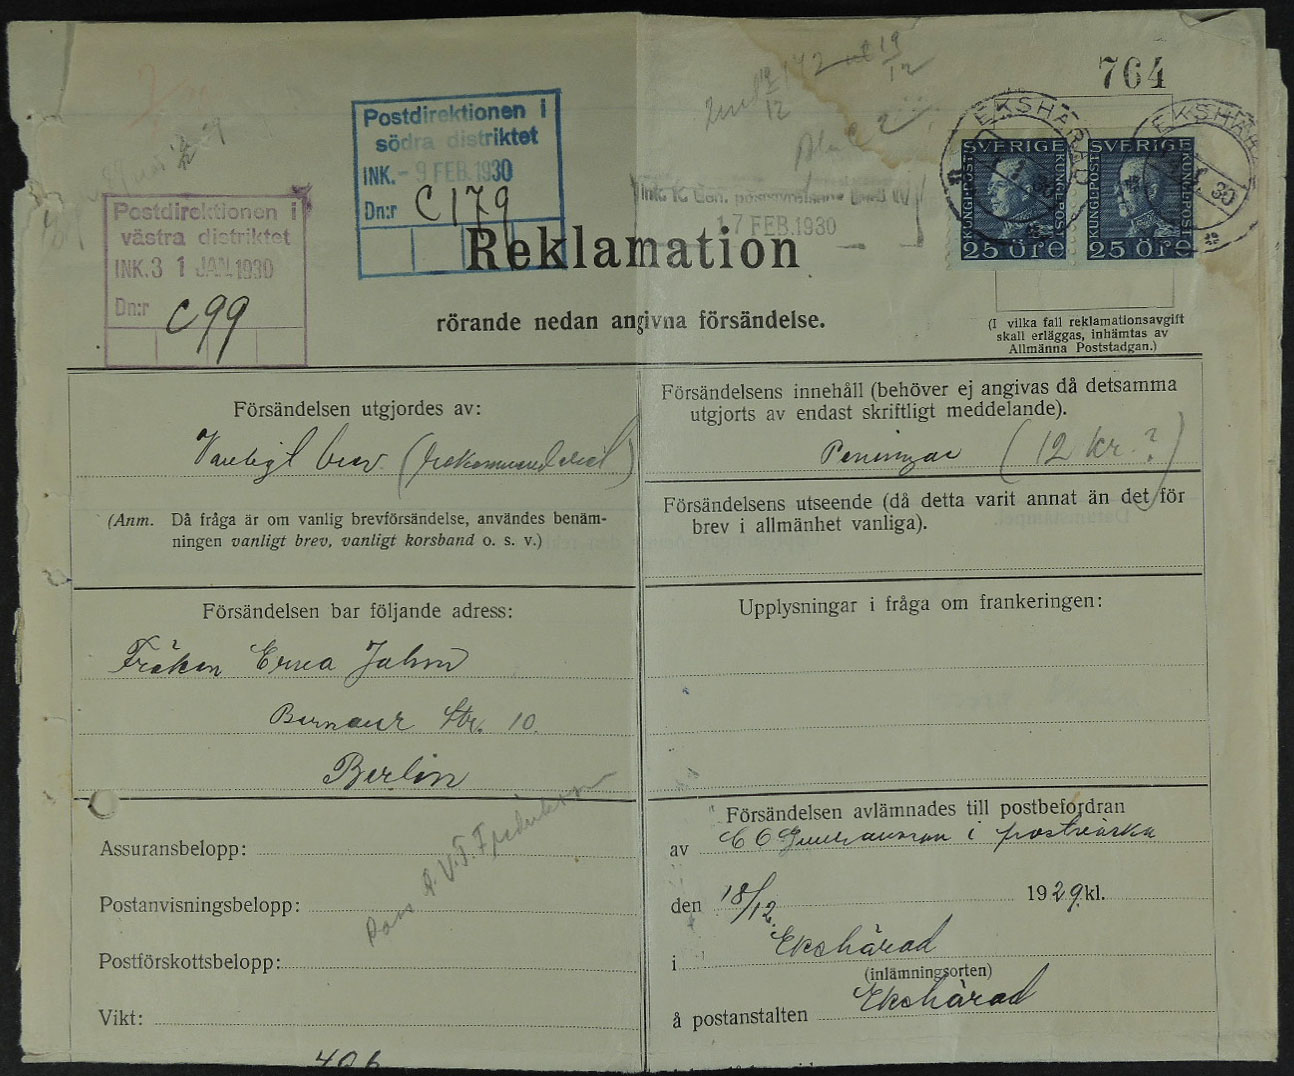 764
Postdirektionen i
södra distriktet
INK. - 9 FEB. 1930
Dn:r C 179
Postdirektionen i
västra distriktet
INK. 3 1 JAN. 1930
Dn:r C 99
Ink.
17 FEB. 1930
EKSHÄRAD
EKSHÄRAD
30
SVERIGE
KUNGL POST
KUNGL POST
25 ÖRE
SVERIGE
KUNGL POST
KUNGL POST
25 ÖRE
Reklamation
rörande nedan angivna försändelse.
(I vilka fall reklamationsavgift
skall erläggas, inhämtas av
Allmänna Poststadgan.)
Försändelsen utgjordes av:
Vanligt brev (rekommenderat)
(Anm. Då fråga är om vanlig brevförsändelse, användes benäm-
ningen vanligt brev, vanligt korsband o. s. v.)
Försändelsens innehåll (behöver ej angivas då detsamma
utgjorts av endast skriftligt meddelande).
Peningar (12 kr.?)
Försändelsens utseende (då detta varit annat än det för
brev i allmänhet vanliga).
Försändelsen bar följande adress:
Fröken Erna Jahn
Str. 10.
Berlin
Upplysningar i fråga om frankeringen:
Assuransbelopp:
Postanvisningsbelopp:
Postförskottsbelopp:
Vikt:
Försändelsen avlämnades till postbefordran
av C O i postväska
den 18/12 1929 kl.
i Ekshärad
(inlämningsorten)
å postanstalten Ekshärad